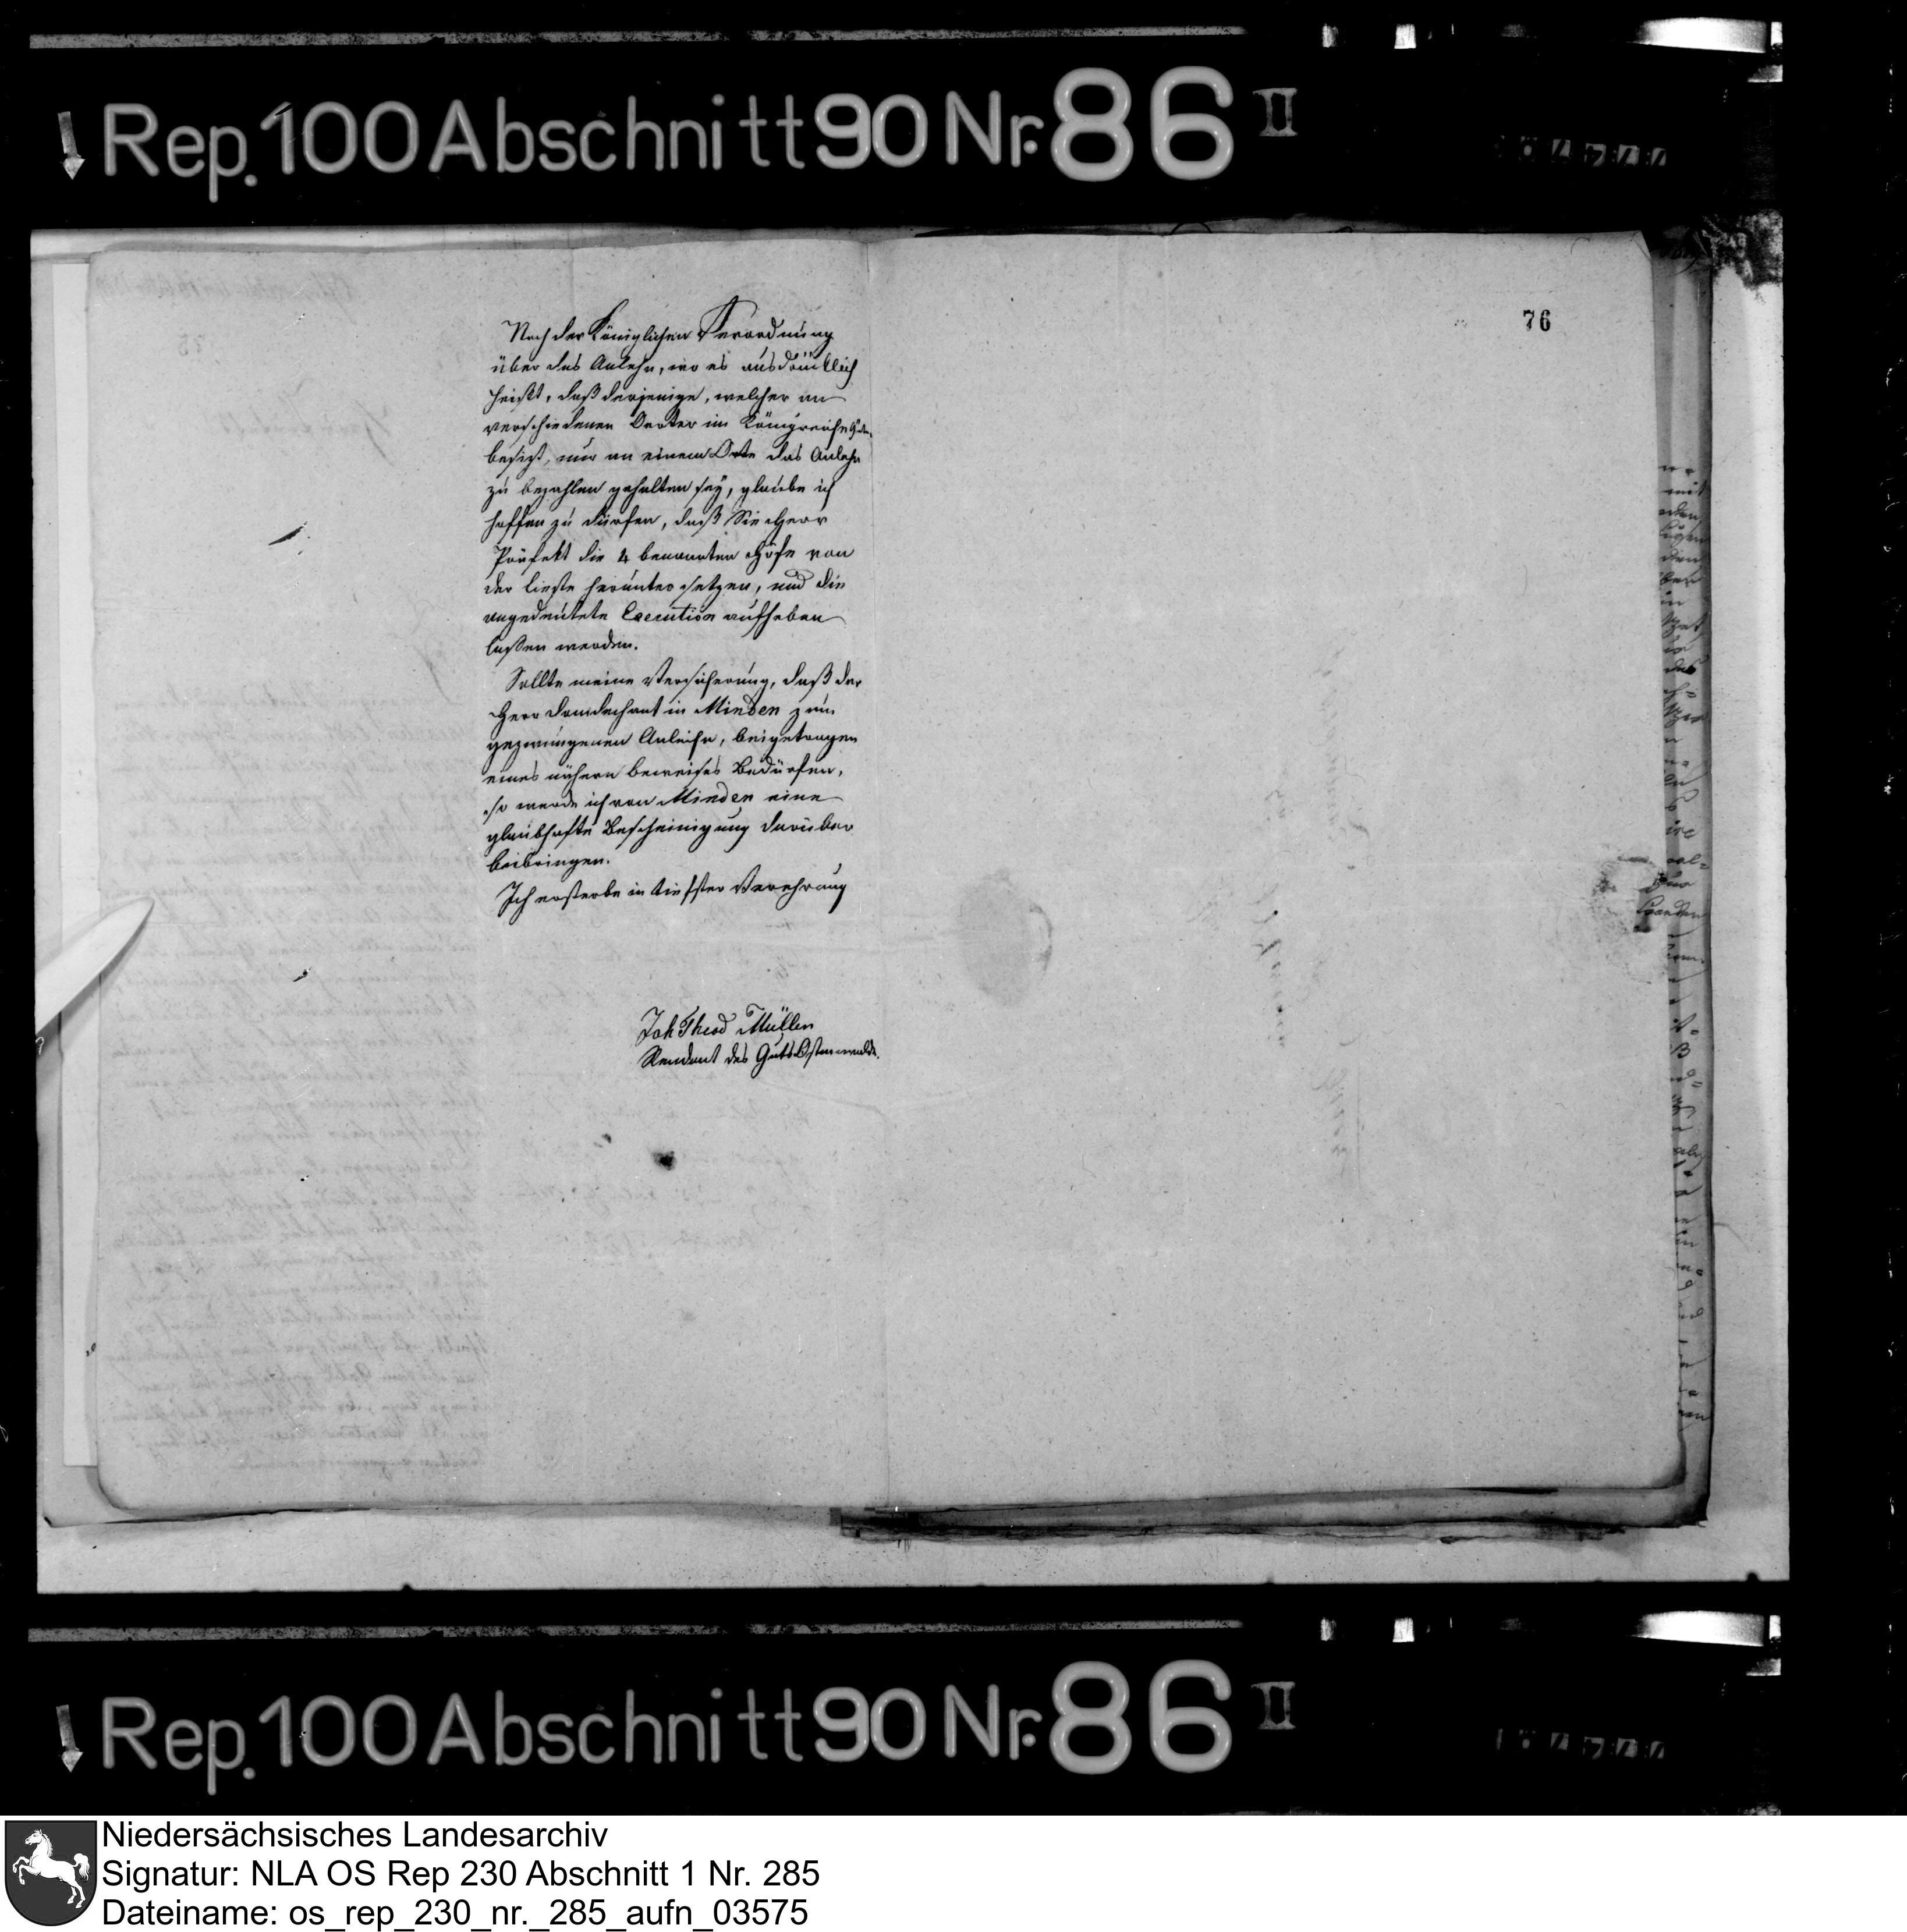 Rep. 100 Abschnitt 90 Nr. 86 II
76
Nach der Königlichen Verordnung
über das Anlehn, wo es ausdrücklich
heißt, daß derjenige, welcher an
verschiedenen Oerter im Königreiche Güter
besizt, nur an einem Orte das Anlehn
zu bezahlen gehalten sey, glaube ich
hoffen zu dürfen, daß Sie Herr
Präfekt die 4 benannten Höfe von
der Lieste herunter setzen, und die
angedeutete Execution aufheben
laßen werden.
Sollte meine Versicherung, daß der
Herr Domdechant in Minden zum
gezwungenen Anleihn, beigetragen
eines nähern beweises Bedürfen,
so werde ich von Minden eine
glaubhafte Bescheinigung darüber
beibringen.
Ich ersterbe in tiefster Verehrung
Joh Theod Müller
Rendant des Guts Ostenwalde.
Rep. 100 Abschnitt 90 Nr. 86 II
Niedersächsisches Landesarchiv
Signatur: NLA OS Rep 230 Abschnitt 1 Nr. 285
Dateiname: os_rep_230_nr._285_aufn_03575